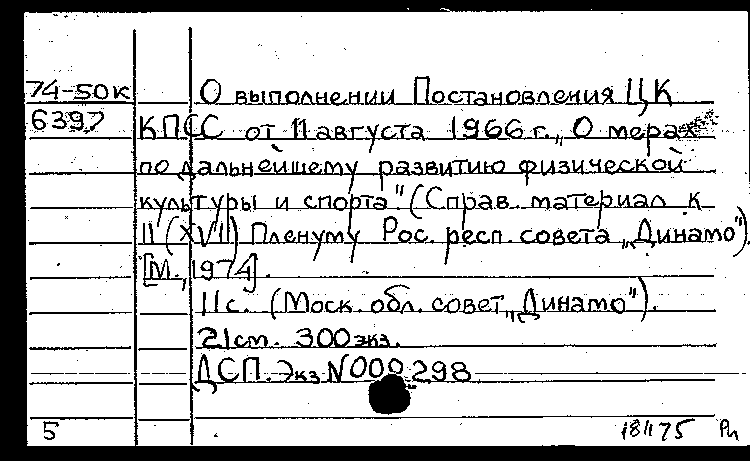 74-50к О выполнении Постановления ЦК
6397 КПСС от 11 августа 1966 г. „О мерах
по дальнейшему развитию физической
культуры и спорта" (Справ. материал к
II (XVII) Пленуму Рос. респ. совета „Динамо").
[М., 1974].
11с. (Моск. обл. совет „Динамо").
21см. 300 экз.
ДСП. Экз N 000298
5 18 II 75